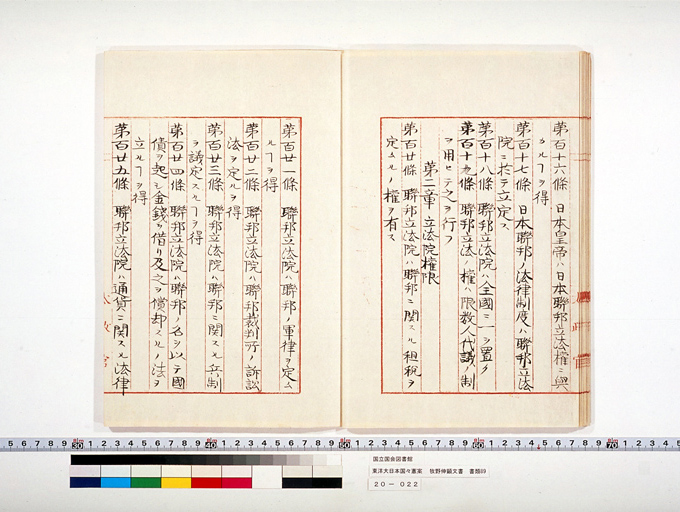 第百十六條　日本皇帝ハ日本聯邦立法權ニ與
カルヿヲ得
第百十七條　日本聯邦ノ法律制度ハ聯邦立法
院ニ於テ立定ス
第百十八條　聯邦立法院ハ全國ニ一ヲ置ク
第百十九條　聯邦立法ノ權ハ限数人代議ノ制
ヲ用ヒテ之ヲ行フ
第二章　立法院權限
第百廿條　聯邦立法院ハ聯邦ニ関スル租税ヲ
定ムルノ權ヲ有ス
第百廿一條　聯邦立法院ハ聯邦ノ軍律ヲ定ム
ルヿヲ得
第百廿二條　聯邦立法院ハ聯邦裁判所ノ訴訟
法ヲ定ルヲ得
第百廿三條　聯邦立法院ハ聯邦ニ関スル兵制
ヲ議定スルヿヲ得
第百廿四條　聯邦立法院ハ聯邦ノ名ヲ以テ國
債ヲ起シ金錢ヲ借リ及之ヲ償却スルノ法ヲ
立ルヿヲ得
第百廿五條　聯邦立法院ハ通貨ニ関スル法律
国立国会図書館
東洋大日本国々憲案　牧野伸顕文書　書類69
20－022